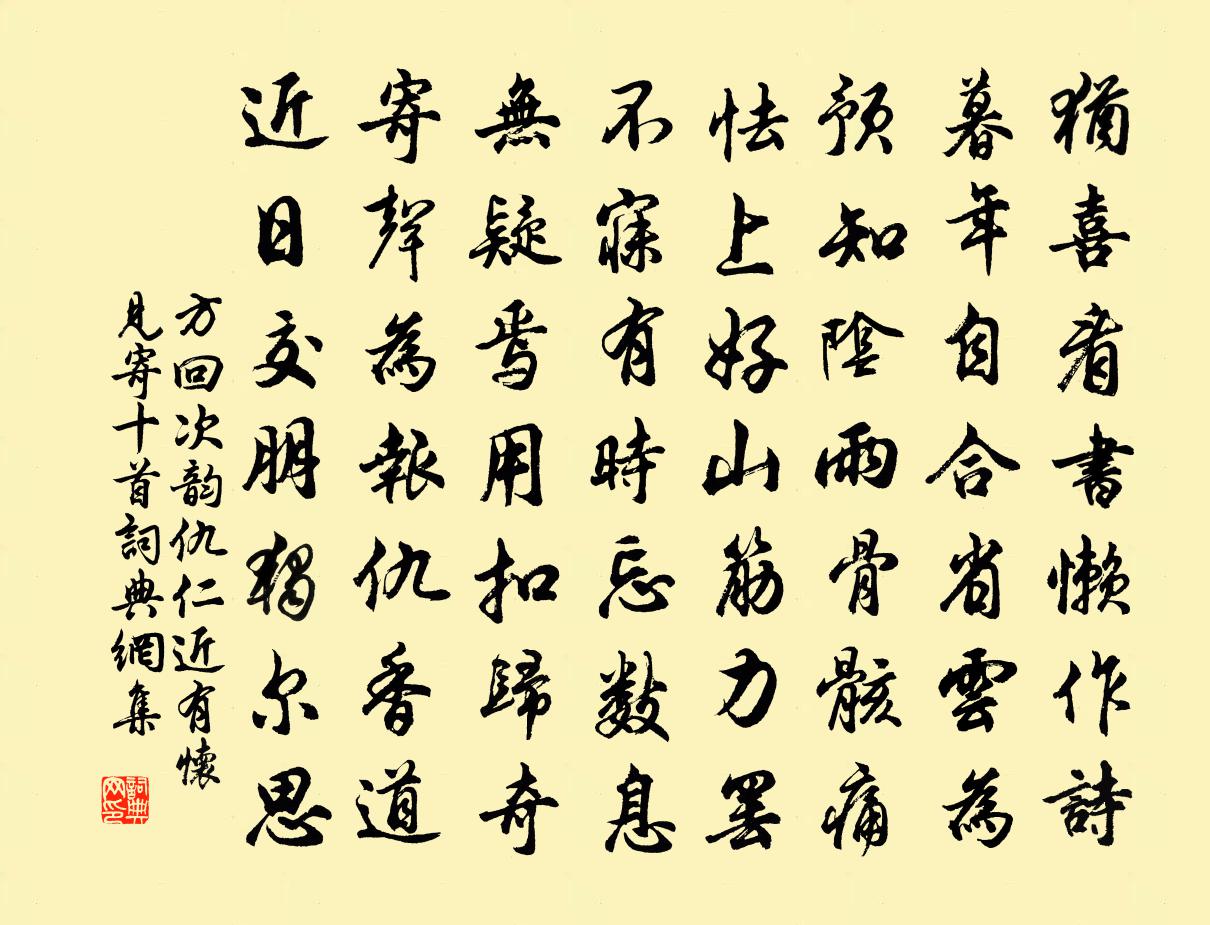 猶喜看書懶作詩
暮年自合省雲為
預知陰雨骨骸痛
怯上好山筋力罷
不寐有時忘數息
無疑焉用扣歸奇
寄聲為報仇香道
近日交朋獨尔思
方回次韵仇仁近有懷
見寄十首詞典網集
詞典
网印